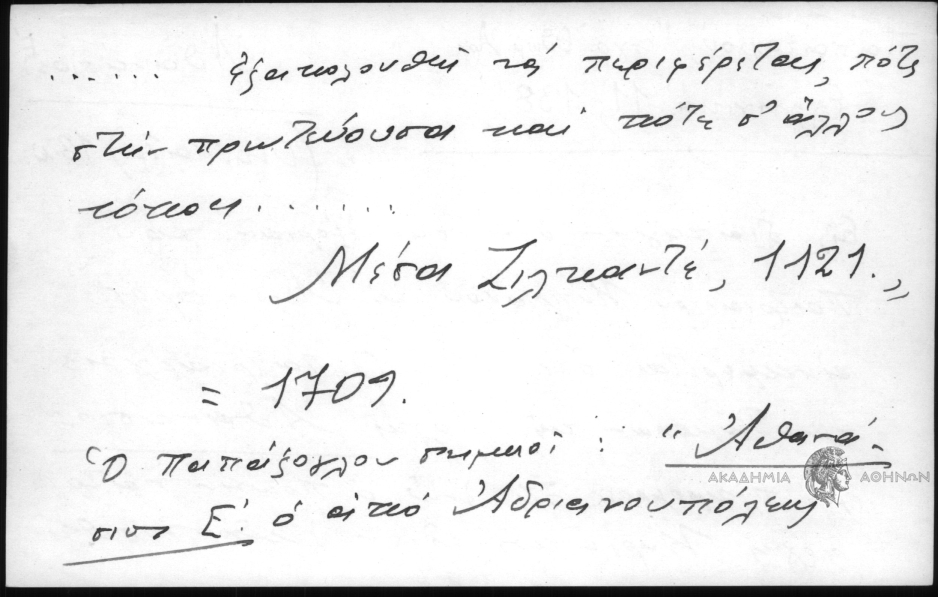 ...... ἐξακολουθῆ νά περιφέρεται, πότε
στήν πρωτεύουσα καί πότε σ' ἄλλους
τόπους.......
Μέσα Ζιλκαντέ, 1121.„
= 1709.
Ὁ Παπάζογλου σημειοῖ: "Ἀθανά-
σιος Ε΄. ὁ ἀπό Ἀδριανουπόλεως
ΑΚΑΔΗΜΙΑ ΑΘΗΝΩΝ